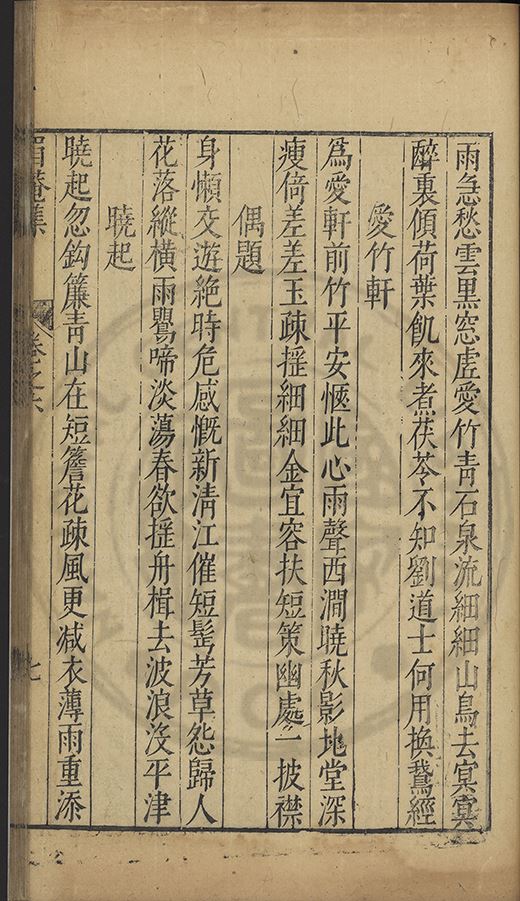 雨急愁雲黑窓虗愛竹青石泉流細細山鳥去冥冥
醉裏傾荷葉飢來煮茯苓不知劉道士何用換鵞經
愛竹軒
爲愛軒前竹平安愜此心雨聲西澗曉秋影北堂深
瘦倚差差玉疎揺細細金宜容扶短策幽處一披襟
偶題
身懶交遊絶時危感慨新清江催短髩芳草怨歸人
花落縱橫雨鸎啼淡蕩春欲揺舟楫去波浪没平津
曉起
曉起忽鈎簾青山在短簷花疎風更减衣薄雨重添
眉菴集
卷之六
七